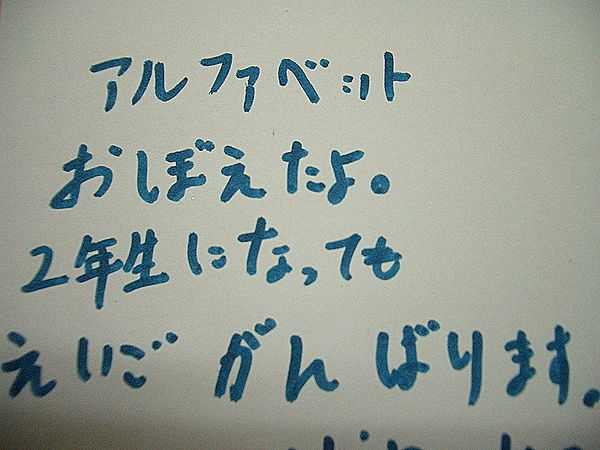 アルファベット
おぼえたよ。
2年生になっても
えいごがんばります。